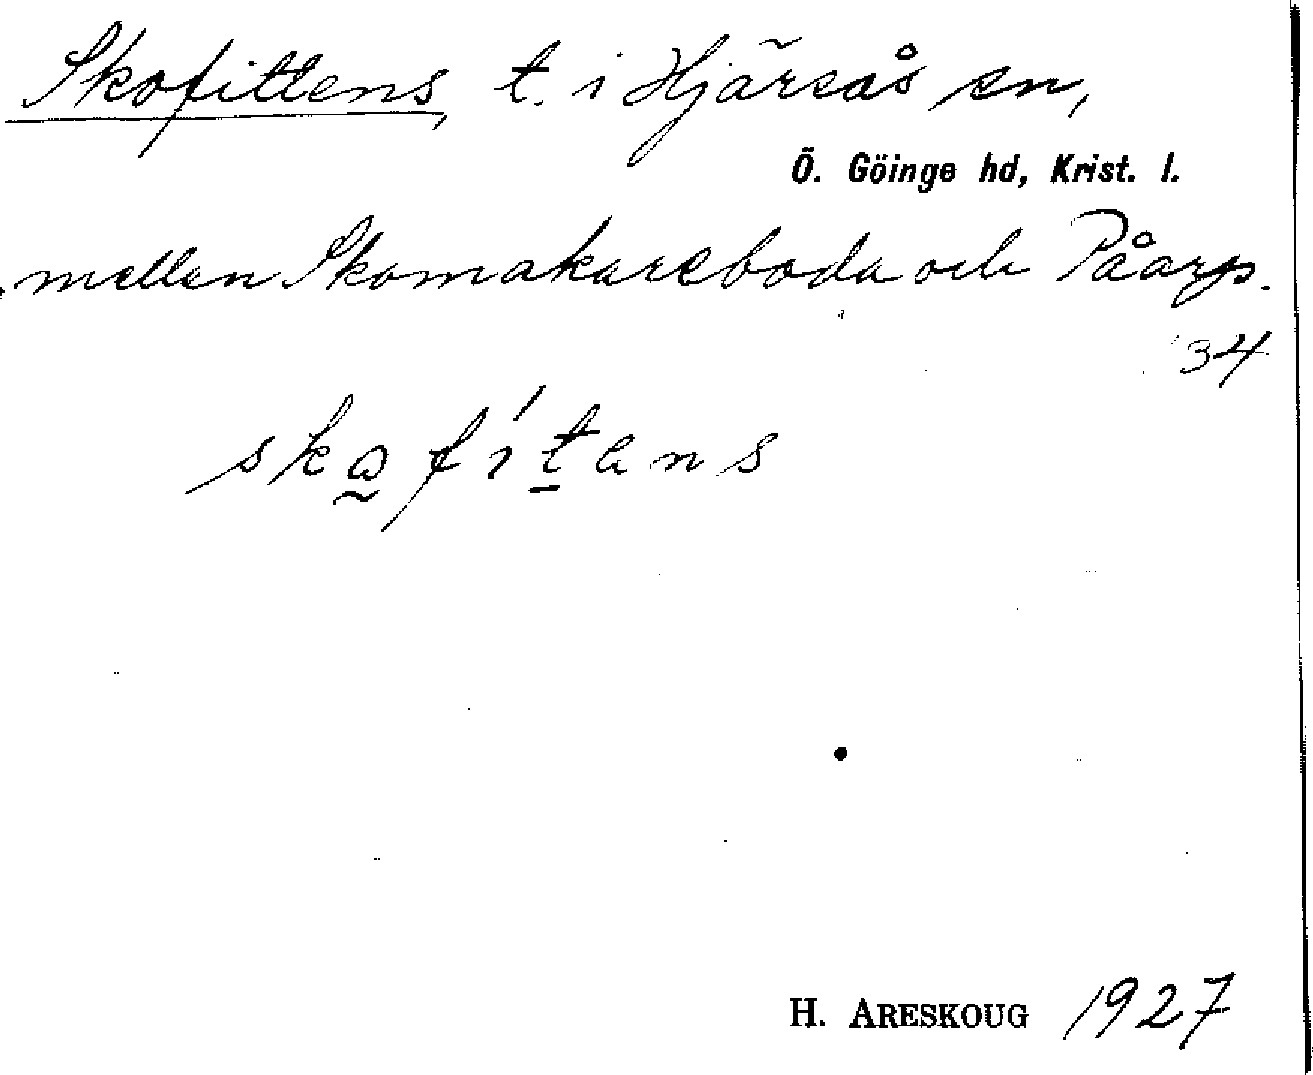 Skofittens, t. i Hjärsås sn,
Ö. Göinge hd, Krist. l.
mellan Skomakareboda och Påarp.
34
skofítans
H. ARESKOUG 1927